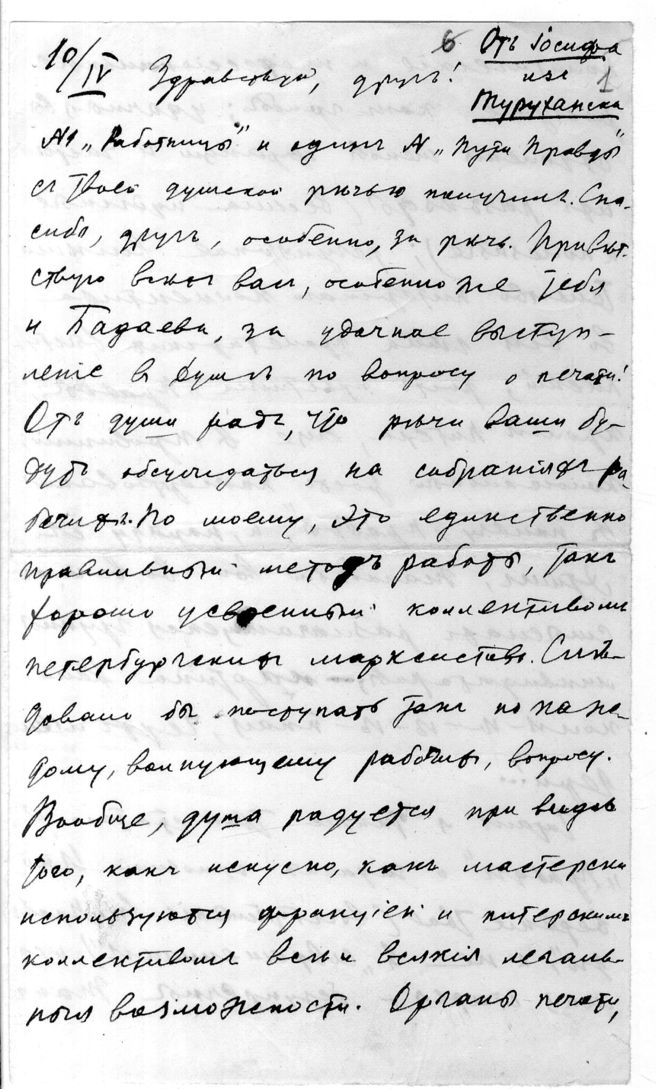 6 Отъ Іосифа
10/IV Здравствуй, другъ! изъ 1
Туруханска
№1 „Работницы" и одинъ № „Пути Правды"
съ Твоей думской рѣчью получилъ. Спа-
сибо, другъ, особенно, за рѣчь. Привѣт-
ствую всѣхъ вас, особенно же Тебя
и Бадаева, за удачное выступ-
леніе в Думѣ по вопросу о печати!
Отъ души радъ, что рѣчи ваши бу-
дутъ обсуждаться на собраніяхъ ра-
бочихъ. По моему, это единственно
правильный методъ работы, такъ
хорошо усвоенный коллективомъ
петербургскихъ марксистовъ. Слѣ-
довало бы поступать такъ по каж-
дому, волнующему рабочихъ, вопросу.
Вообще, душа радуется при видѣ
того, какъ искусно, какъ мастерски
используются фракціей и питерскимъ
коллективомъ всѣ и всякія легаль-
ныя возможности. Органы печати,